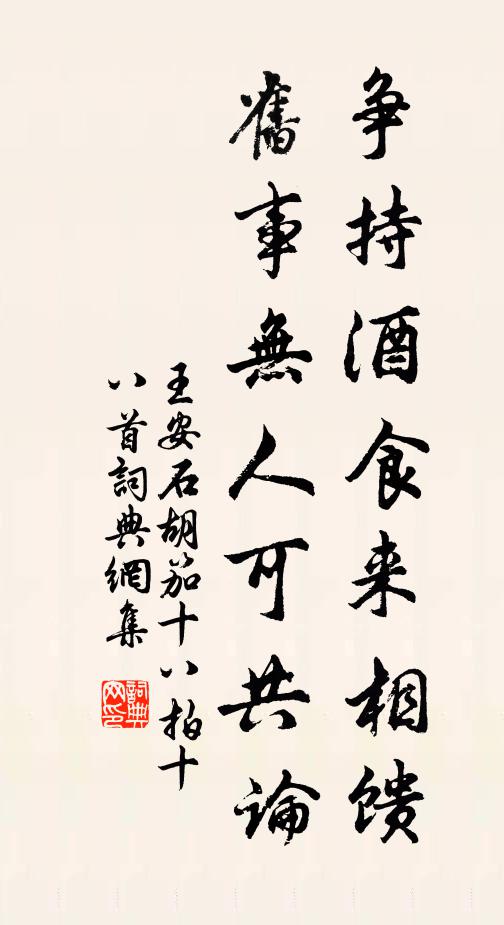 争持酒食来相馈
舊事無人可共論
王安石胡笳十八拍十
八首詞典網集
詞典網印